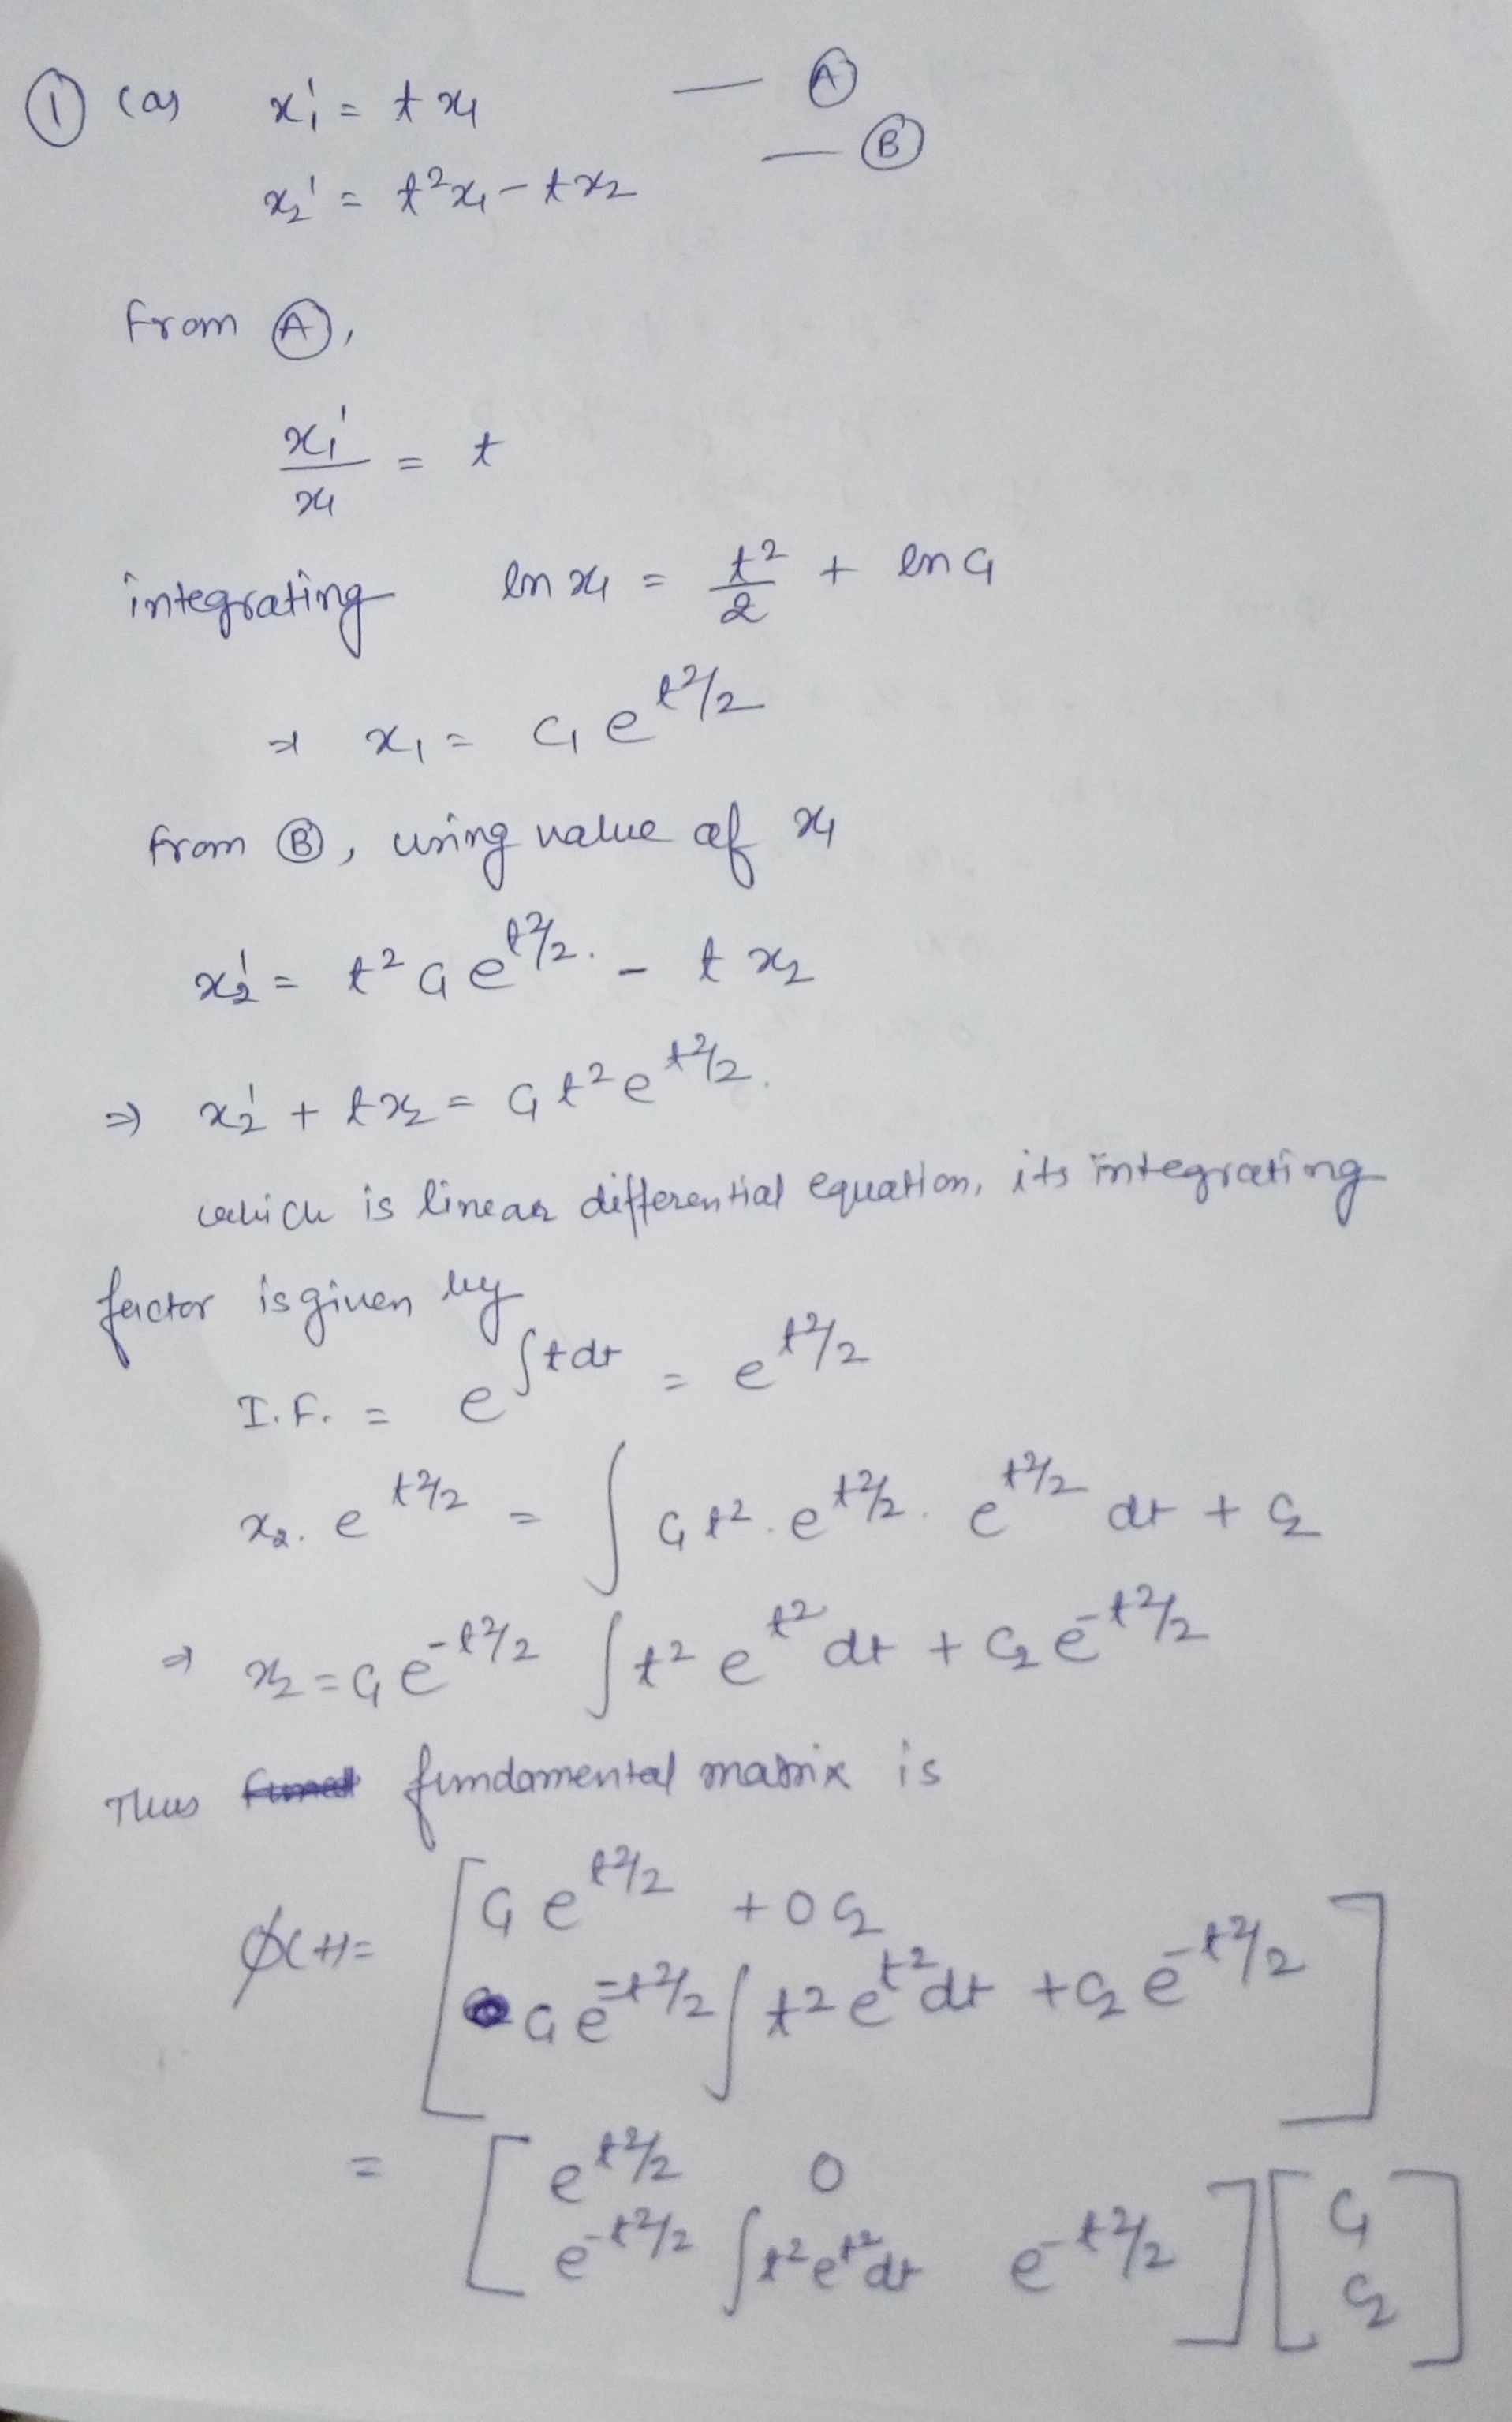 ① (a) x₁' = t x₁ — Ⓐ
x₂' = t²x₁ - t x₂ — Ⓑ
From Ⓐ,
x₁'/x₁ = t
integrating ln x₁ = t²/2 + ln c₁
⇒ x₁ = c₁ e^(t²/2)
from Ⓑ, using value of x₁
x₂' = t² c₁ e^(t²/2). - t x₂
⇒ x₂' + t x₂ = c₁ t² e^(t²/2).
which is linear differential equation, its integrating
factor is given by
I.F. = e^(∫t dt) = e^(t²/2)
x₂. e^(t²/2) = ∫ c₁ t². e^(t²/2). e^(t²/2) dt + c₂
⇒ x₂ = c₁ e^(-t²/2) ∫ t² e^(t²) dt + c₂ e^(-t²/2)
Thus fundamental matrix is
φ(t) = [ c₁ e^(t²/2) + 0 c₂
c₁ e^(-t²/2) ∫ t² e^(t²) dt + c₂ e^(-t²/2) ]
= [ e^(t²/2) 0
e^(-t²/2) ∫ t² e^(t²) dt e^(-t²/2) ] [ c₁
c₂ ]